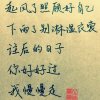 起风了照顾好自己
下雨了别淋湿衣裳
往后的日子
你好好过
我慢慢走